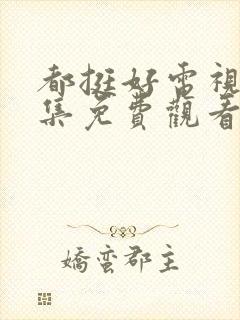 都挺好電視
集免費觀看
嬌蠻郡主